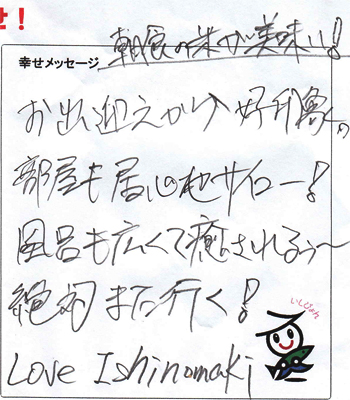 せ！
朝食の米が美味い！
幸せメッセージ
お出迎えから好印象の
部屋も居心地サイコー！
風呂も広くて癒されるぅ〜
絶対また行く！
いしぴょん
Love Ishinomaki